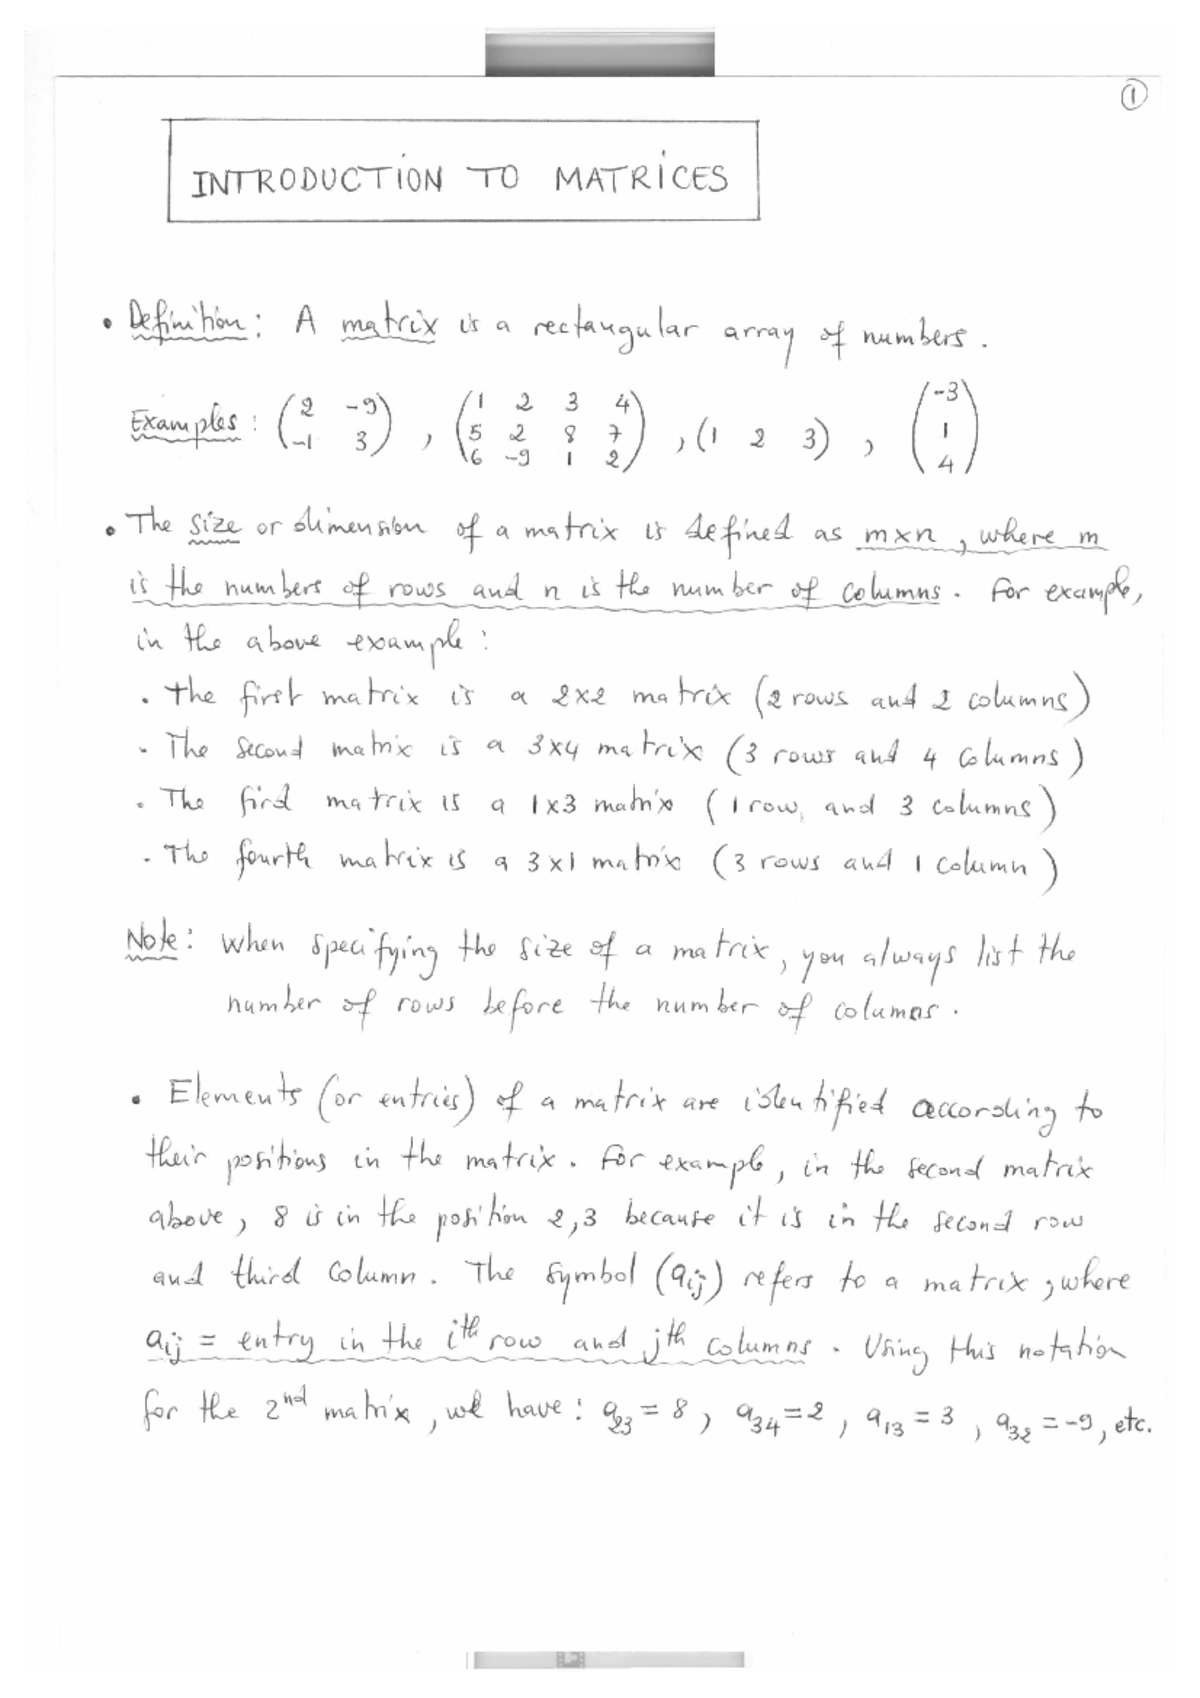 ①
INTRODUCTION TO MATRICES
• Definition: A matrix is a rectangular array of numbers.
Examples: (2 -9; -1 3), (1 2 3 4; 5 2 8 7; 6 -9 1 2), (1 2 3), (-3; 1; 4)
• The size or dimension of a matrix is defined as m×n, where m
is the numbers of rows and n is the number of columns. For example,
in the above example:
. The first matrix is a 2×2 matrix (2 rows and 2 columns)
. The second matrix is a 3×4 matrix (3 rows and 4 columns)
. The third matrix is a 1×3 matrix (1 row, and 3 columns)
. The fourth matrix is a 3×1 matrix (3 rows and 1 column)
Note: When specifying the size of a matrix, you always list the
number of rows before the number of columns.
• Elements (or entries) of a matrix are identified according to
their positions in the matrix. For example, in the second matrix
above, 8 is in the position 2,3 because it is in the second row
and third column. The symbol (aij) refers to a matrix, where
aij = entry in the ith row and jth columns. Using this notation
for the 2nd matrix, we have: a23 = 8, a34 = 2, a13 = 3, a32 = -9, etc.